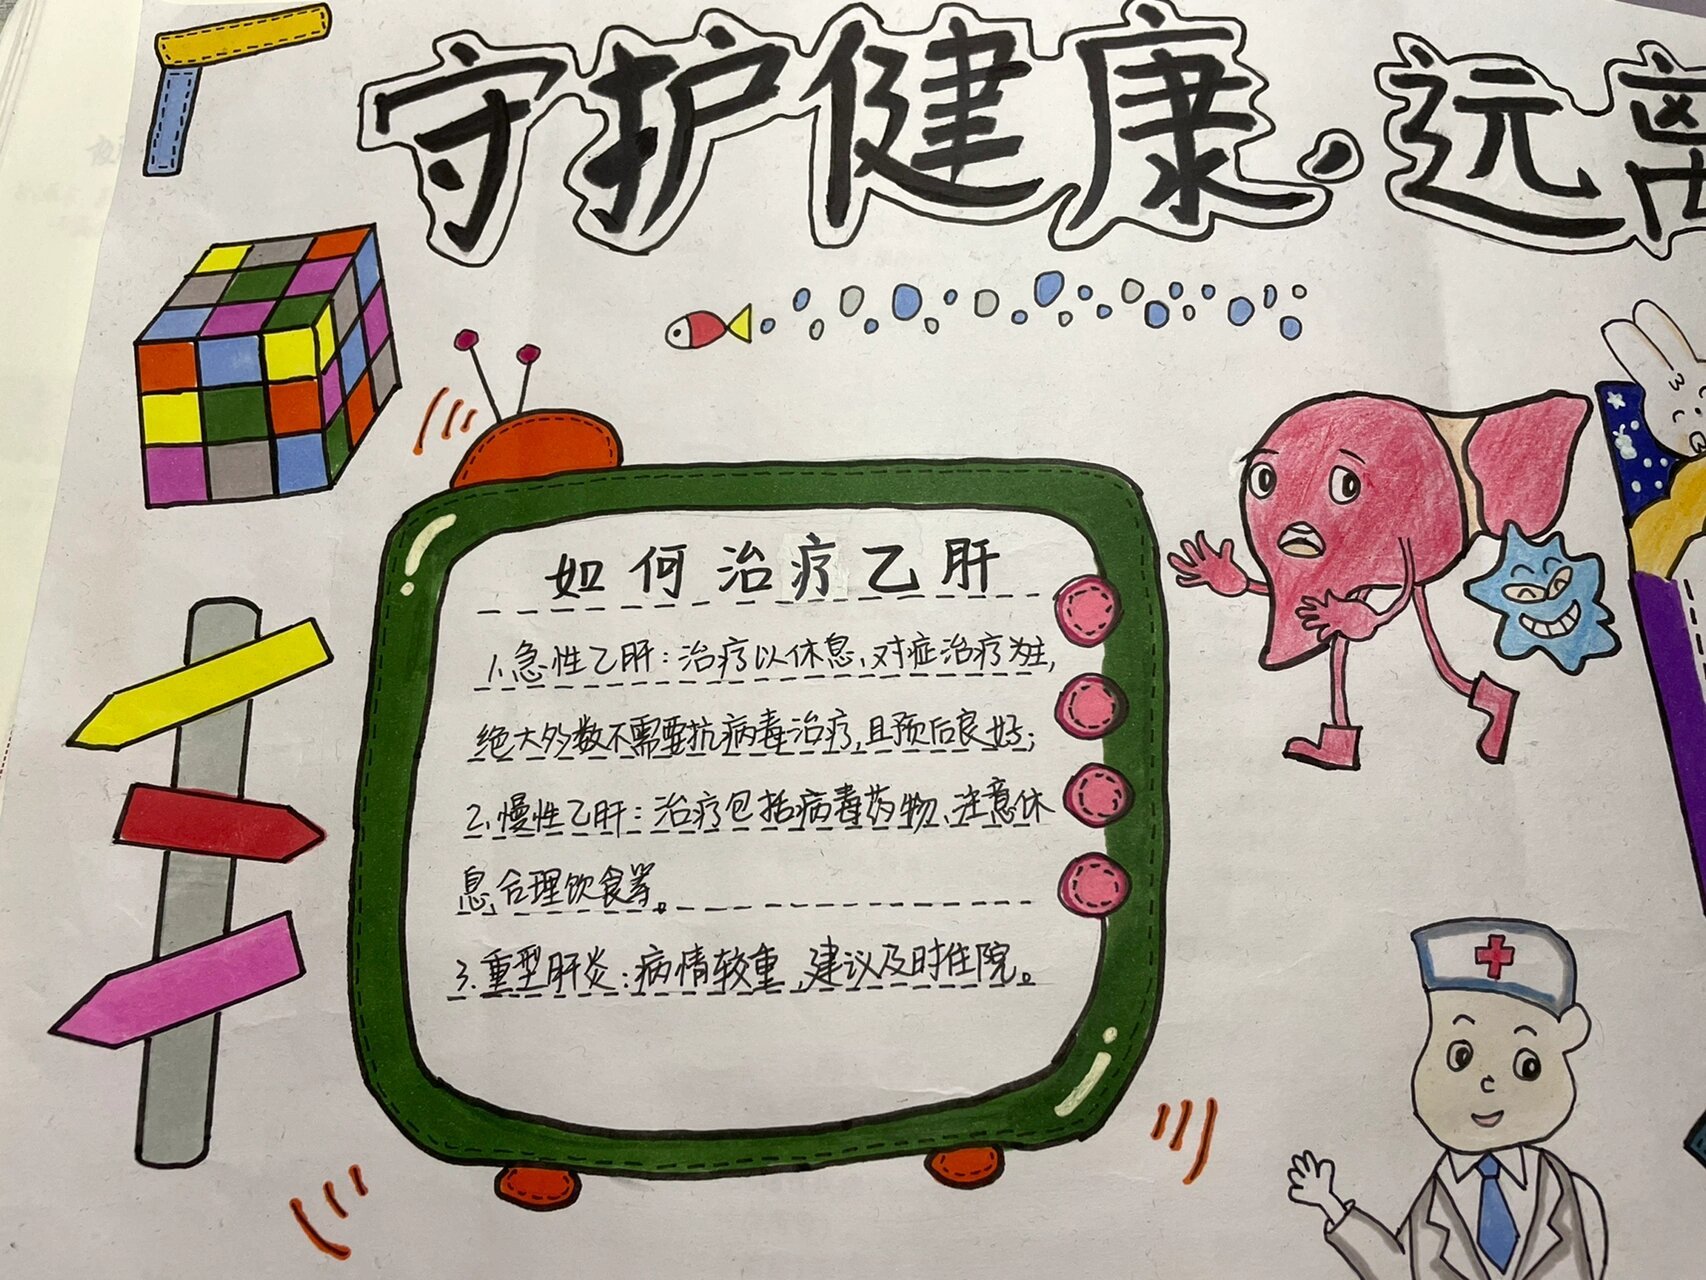 守护健康,远离
如何治疗乙肝
1.急性乙肝:治疗以休息、对症治疗为主,
绝大多数不需要抗病毒治疗,且预后良好;
2.慢性乙肝:治疗包括病毒药物、注意休
息,合理饮食等。
3.重型肝炎:病情较重,建议及时住院。